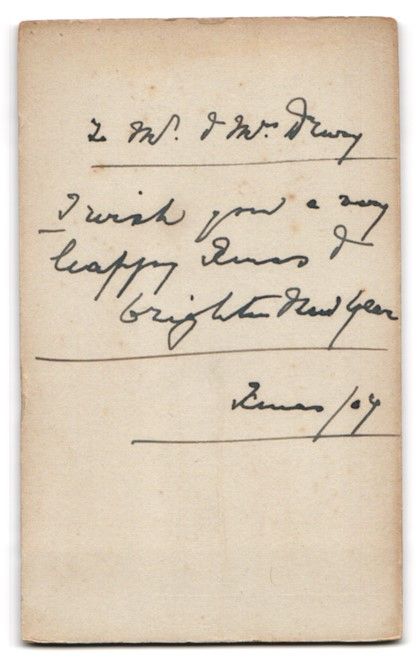 To Mr. & Mrs Drury
I wish you a very
happy Xmas &
brighter New Year
Xmas /04